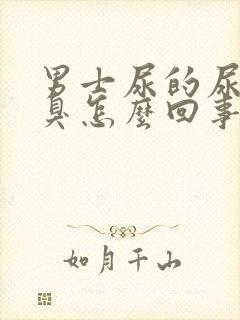 男士尿的尿
臭怎麼回事
如月千山